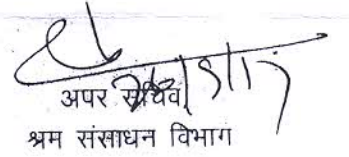 अपर सचिव
श्रम संसाधन विभाग